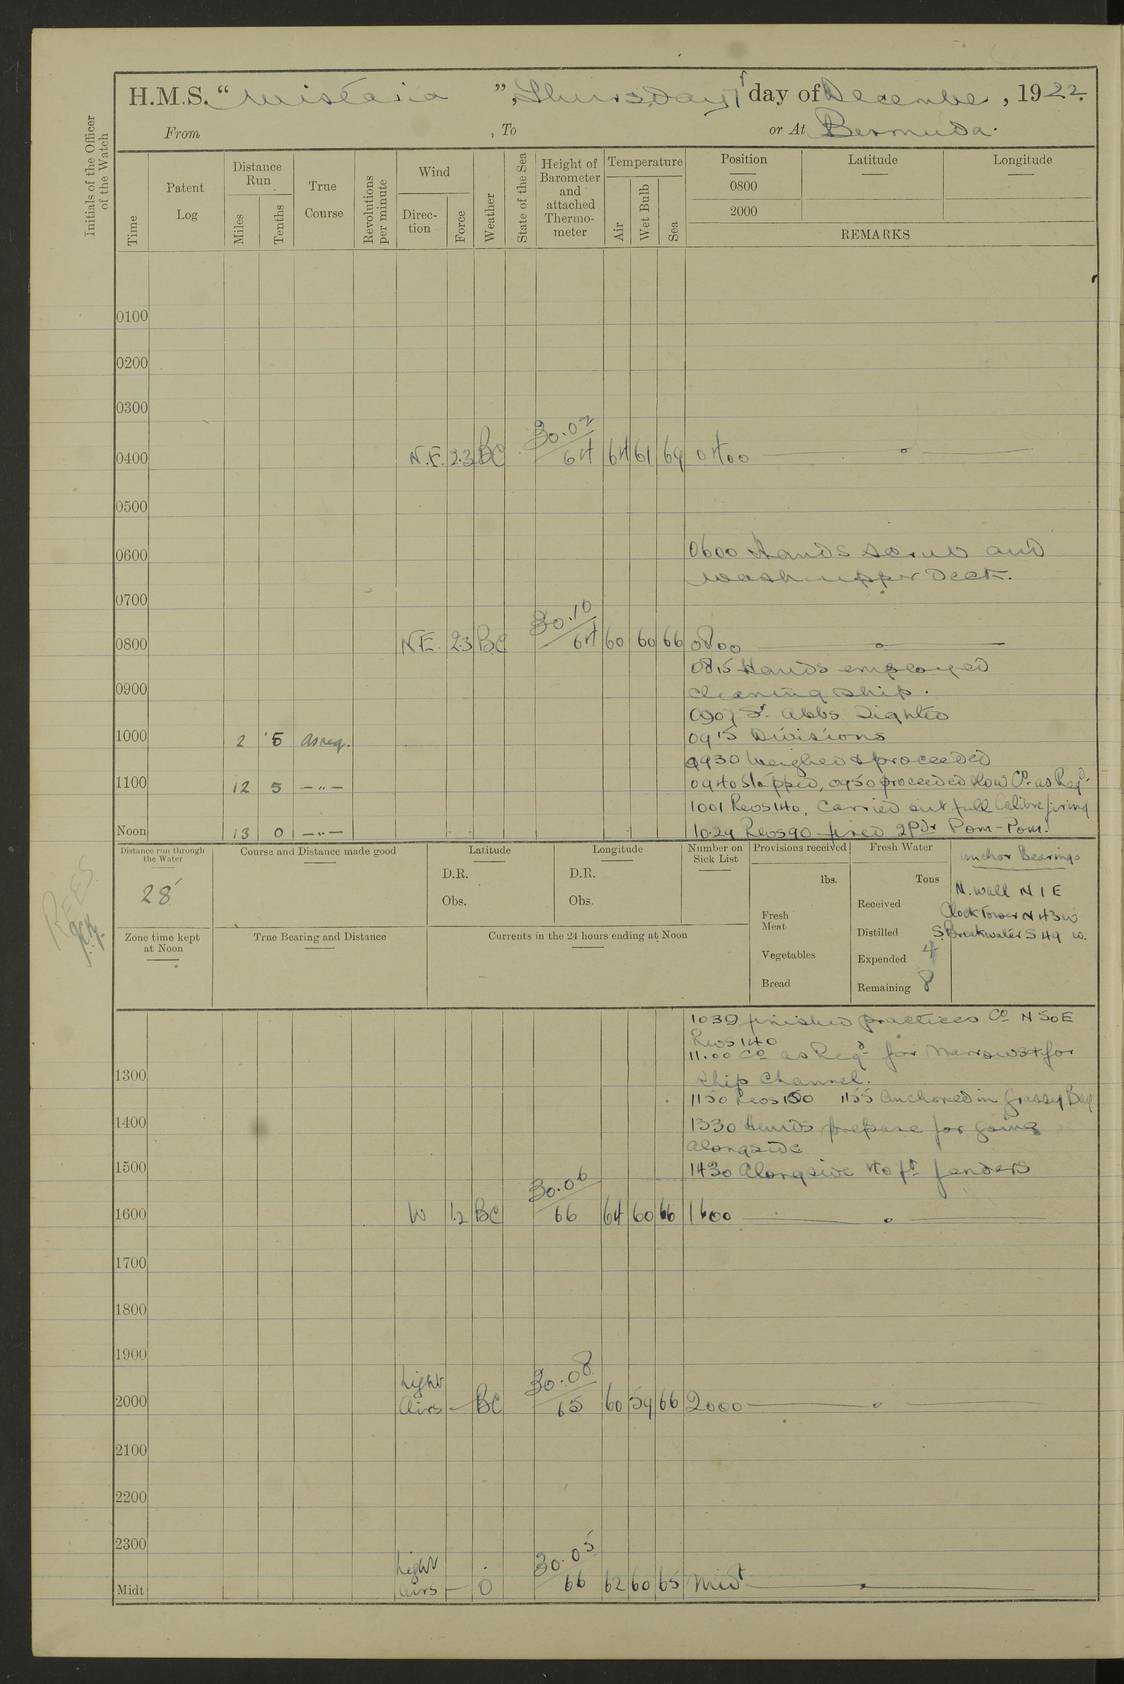 H.M.S. "Wistaria", Thursday 1st day of December, 1922.
From , To or At Bermuda.
Initials of the Officer of the Watch
Time
Patent Log
Distance Run
Miles
Tenths
True Course
Revolutions per minute
Wind
Direction
Force
Weather
State of the Sea
Height of Barometer and attached Thermometer
Temperature
Air
Wet Bulb
Sea
Position Latitude Longitude
0800
2000
REMARKS
0100
0200
0300
0400 N.E. 2.3 BC 30.02 64 64 61 69 0400
0500
0600 0600 Hands scrub and
wash upper Deck.
0700
0800 N.E. 2.3 BC 30.10 64 60 60 66 0800
0815 Hands employed
0900 cleaning ship.
0907 St. Abbs Sighted
1000 2 5 As req. 0915 Divisions
0930 Weighed & proceeded
1100 12 5 —"— 0940 Stopped, 0950 proceeded slow Co. as Reqd.
1001 Revs 140, Carried out full Calibre firing
Noon 13 0 —"— 1029 Revs 90 fired 2 Pdr Pom-Pom.
Distance run through the Water
28
Course and Distance made good
Latitude
D.R.
Obs.
Longitude
D.R.
Obs.
Number on Sick List
Provisions received
lbs.
Fresh Meat
Vegetables
Bread
Fresh Water
Tons
Received
Distilled
Expended 4
Remaining 8
Anchor Bearings
N. Wall N 1 E
Clock Tower N 43 W
S. Breakwater S 49 W.
Zone time kept at Noon
True Bearing and Distance
Currents in the 24 hours ending at Noon
1039 finished practices Co N 50 E
Revs 140
11.00 Co as Reqd for Narrows & for
1300 Ship Channel.
1150 Revs 100 1155 Anchored in Grassy Bay
1400 1330 Hands prepare for going
alongside
1500 1430 Alongside 40 ft fenders
1600 W 1.2 BC 30.06 66 64 60 66 1600
1700
1800
1900
2000 Light Airs — BC 30.08 65 60 59 66 2000
2100
2200
2300
Midt Light Airs — O 30.05 66 62 60 65 Midt